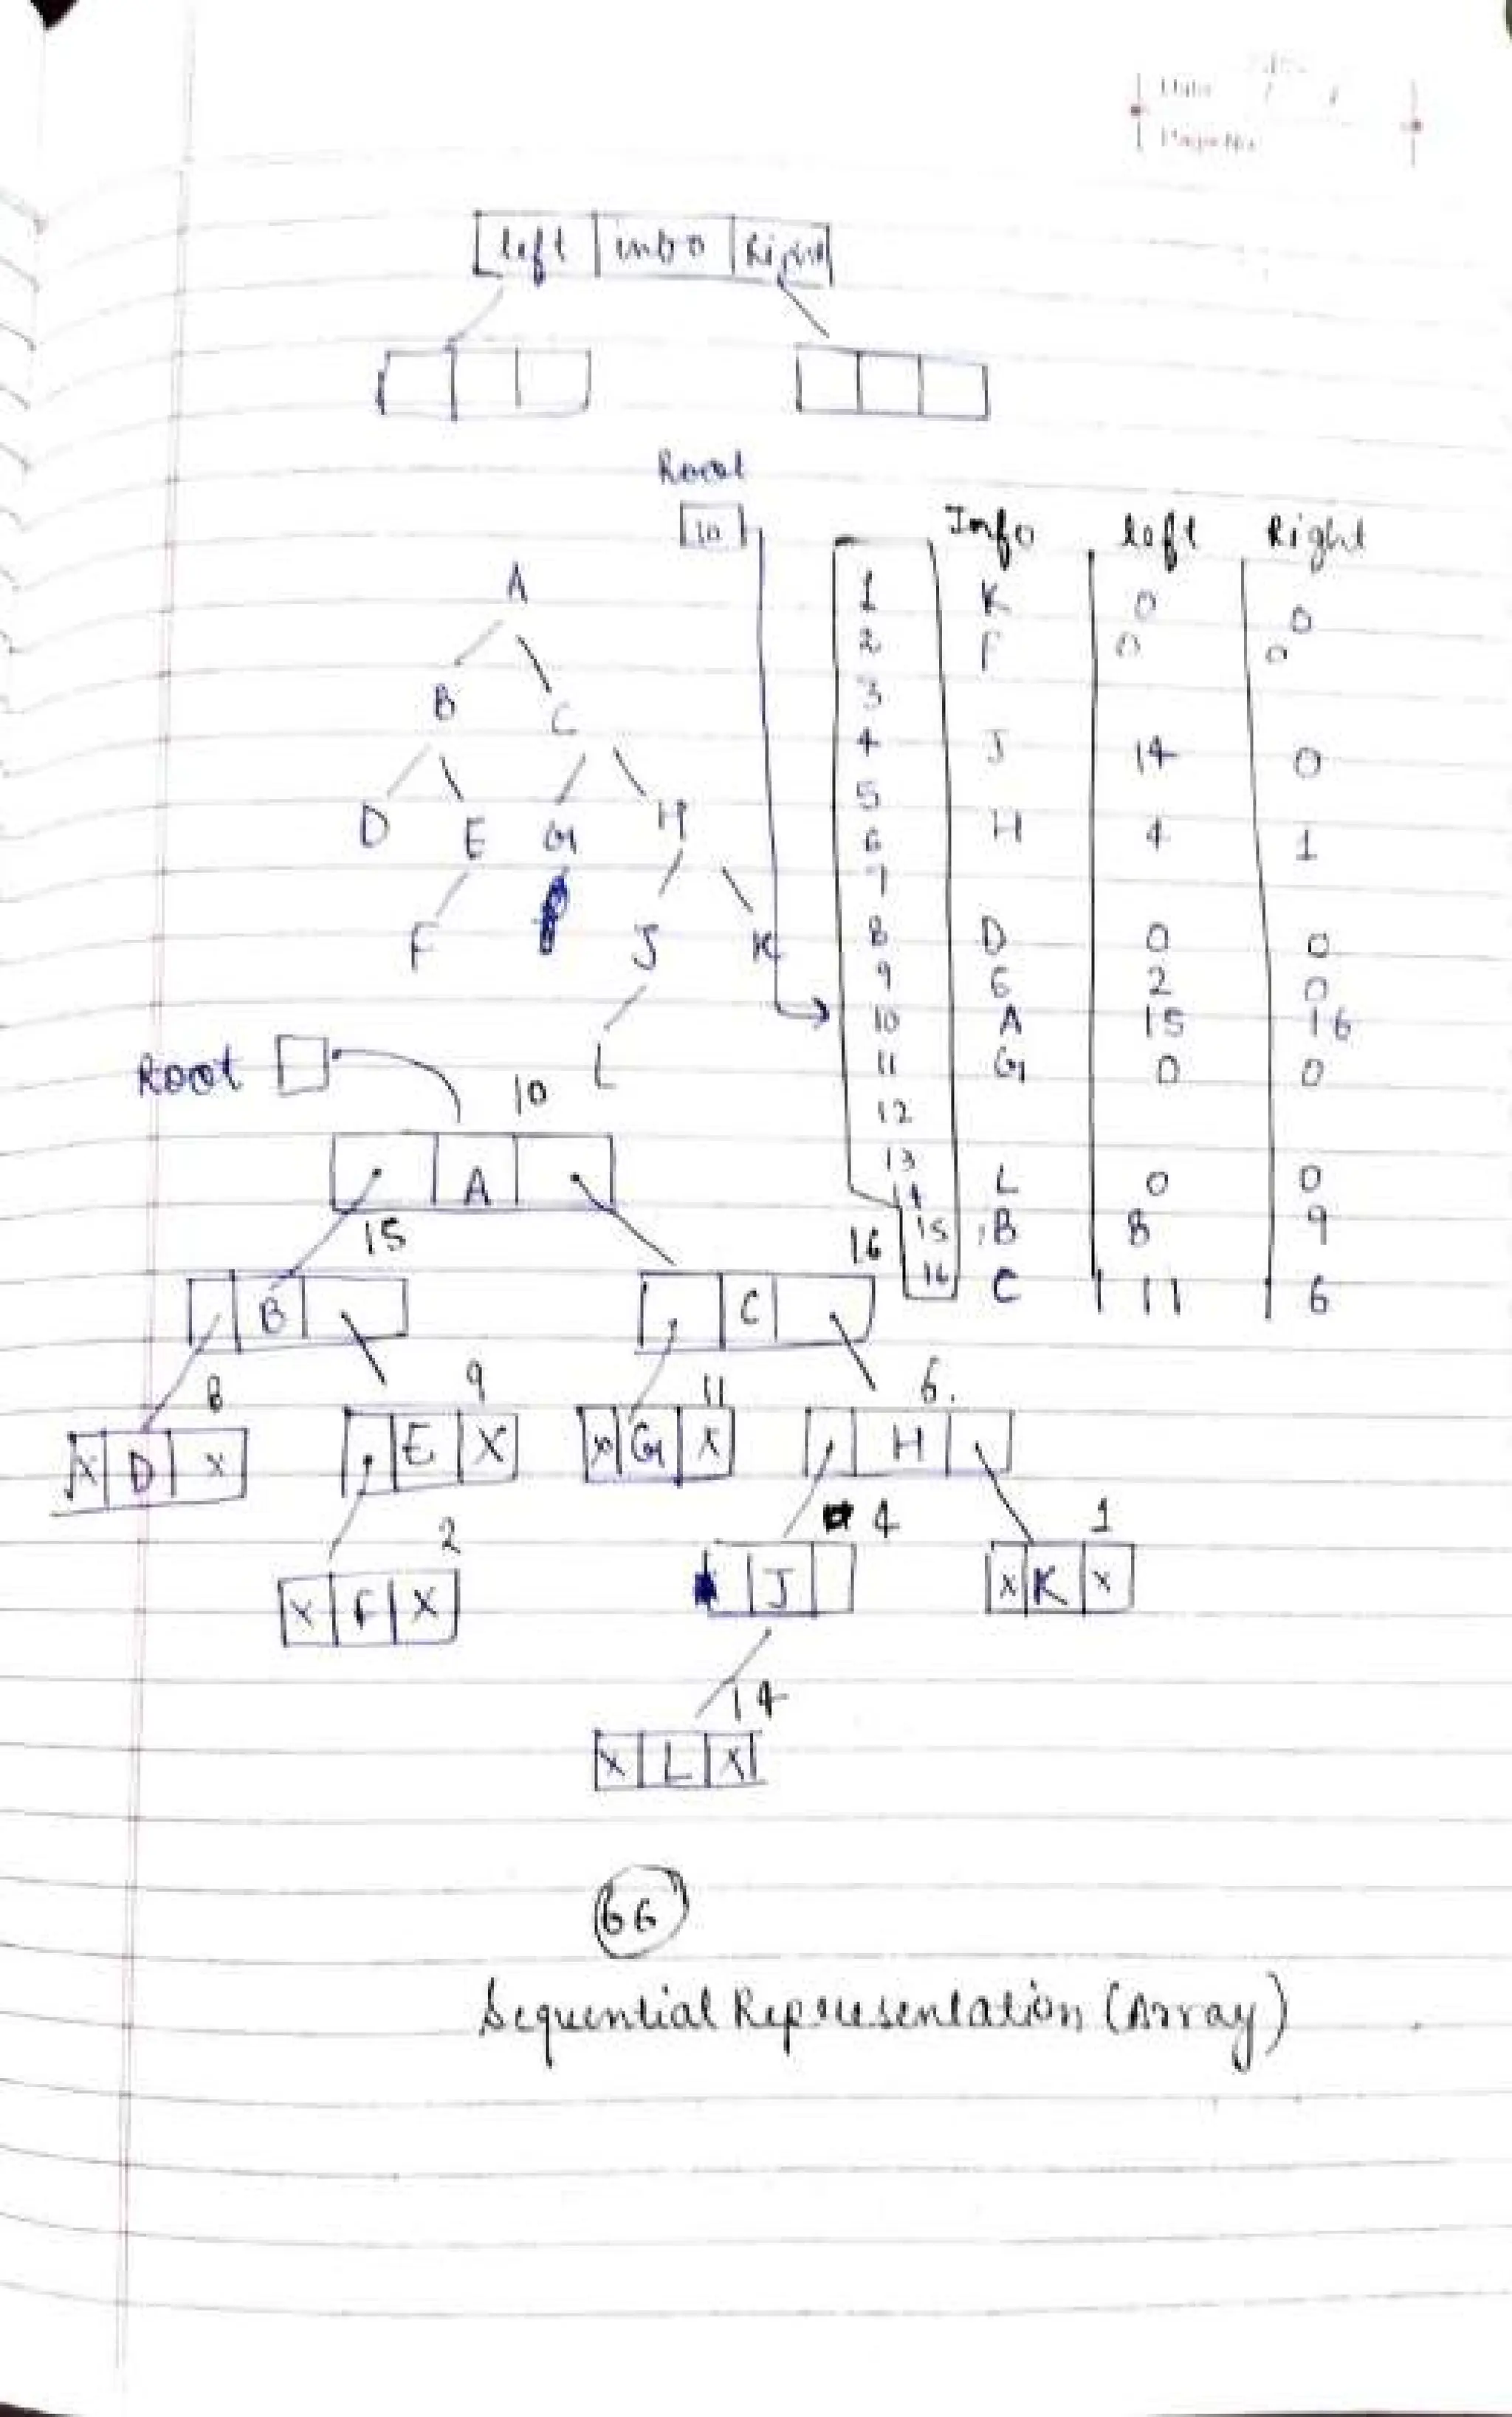 Date / /
Page No.
left info Right
Root
10
Info left Right
1 K 0 0
2 F 0 0
3
4 J 14 0
5
6 H 4 1
7
8 D 0 0
9 E 2 0
10 A 15 16
11 G 0 0
12
13
14 L 0 0
15 B 8 9
16 C 11 6
A
B C
D E G H
F J K
L
Root
10
A
15 16
B C
8 9 11 6.
X D X E X X G X H
2 4 1
X F X J X K X
14
X L X
66
Sequential Representation (Array)